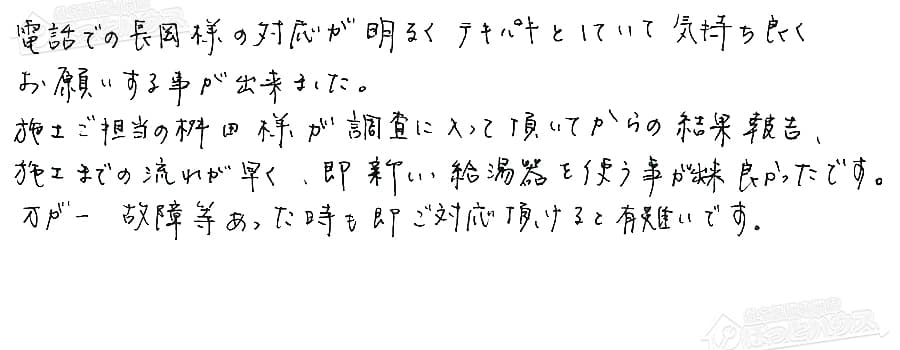 電話での長岡様の対応が明るくテキパキとしていて気持ち良く
お願いする事が出来ました。
施工ご担当の桝田様が調査に入って頂いてからの結果報告、
施工までの流れが早く、即新しい給湯器を使う事が出来良かったです。
万が一故障等あった時も即ご対応頂けると有難いです。
生活設備専門店
ほっとハウス